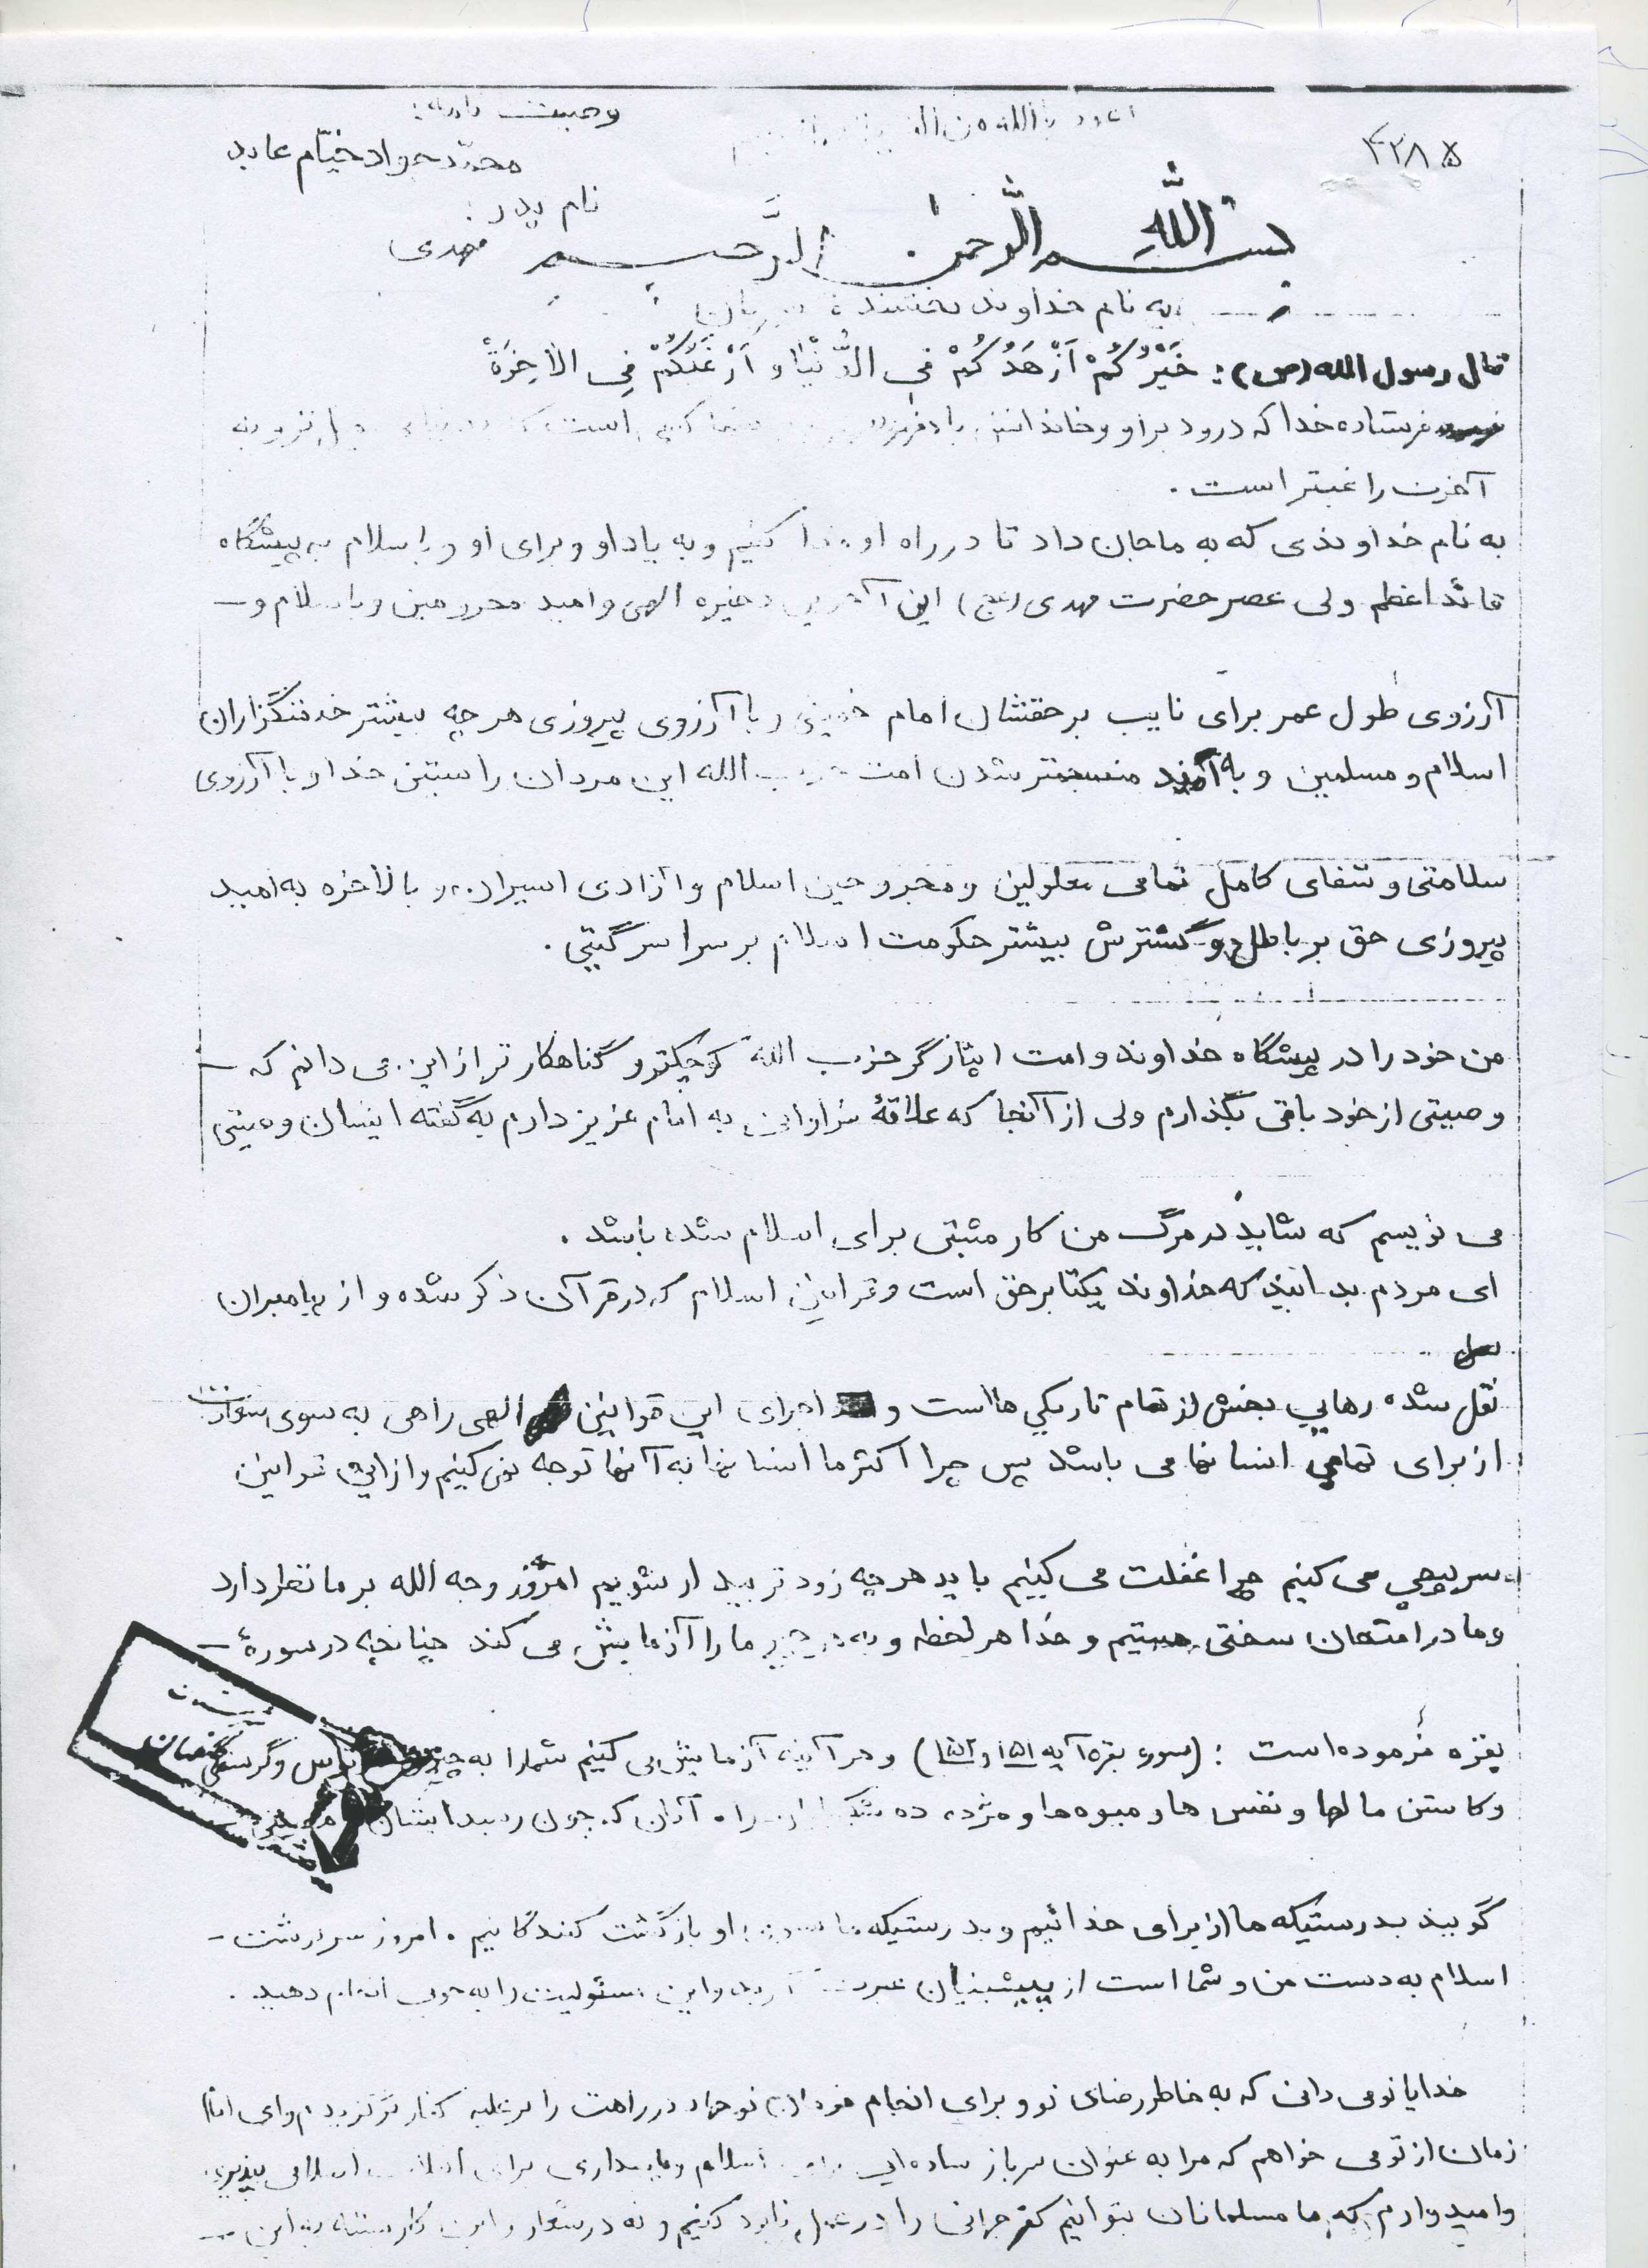 ۴۲۸۵
وصیت نامه:
محمد جواد خیّام عابد
نام پدر:
مهدی
بسم الله الرحمن الرحیم
به نام خداوند بخشنده مهربان
قال رسول الله (ص): خَیْرُکُمْ اَزْهَدُکُمْ فِی الدُّنْیا وَ اَرْغَبُکُمْ فِی الاخِرَةْ
فرستاده خدا که درود بر او و خاندانش باد شما کسی است که
آخرت راغبتر است.
به نام خداوندی که به ما جان داد تا در راه او فدا کنیم و به یاد او و برای او و با سلام به پیشگاه
قائد اعظم ولی عصر حضرت مهدی (عج) این آخرین ذخیره الهی و امید محرومین و با سلام و –
آرزوی طول عمر برای نایب بر حقشان امام خمینی و با آرزوی پیروزی هر چه بیشتر خدمتگزاران
اسلام و مسلمین و به امید منسجمتر شدن امت حزب الله این مردان راستین خدا و با آرزوی
سلامتی و شفای کامل تمامی معلولین و مجروحین اسلام و آزادی اسیران و بالاخره به امید
پیروزی حق بر باطل و گسترش بیشتر حکومت اسلام بر سراسر گیتی.
من خود را در پیشگاه خداوند و امت ایثارگر حزب الله کوچکتر و گناهکارتر از این می دانم که –
وصیتی از خود باقی بگذارم ولی از آنجا که علاقهٔ به امام عزیز دارم به گفته ایشان وصیتی
می نویسم که شاید در مرگ من کار مثبتی برای اسلام شده باشد.
ای مردم بدانید که خداوند یکتا بر حق است و قوانین اسلام که در قرآن ذکر شده و از پیامبران
نقل شده رهایی بخش از تمام تاریکی ها است و اجرای این قوانین الهی راهی به سوی سعادت
از برای تمامی انسانها می باشد پس چرا اکثر ما انسانها به آنها توجه نمی کنیم و از این قوانین
سرپیچی می کنیم چرا غفلت می کنیم باید هر چه زودتر بیدار شویم امروز وجه الله بر ما نظر دارد
و ما در امتحان سختی هستیم و خدا هر لحظه و به ما را آزمایش می کند چنانچه در سورهٔ –
بقره فرموده است: (سوره بقره آیه ۱۵۱ و ۱۵۲) و هر آینه آزمایش می کنیم شما را به ترس و گرسنگی
و کاستن مالها و نفس ها و میوه ها و مژده ده را، آنان که چون رسد ایشان
گویند بدرستیکه ما از برای خدائیم و بدرستیکه ما بسوی او بازگشت کنندگانیم. امروز سرنوشت –
اسلام به دست من و شما است از پیشینیان عبرت و این مسئولیت را به خوبی انجام دهید.
خدایا تو می دانی که به خاطر رضای تو و برای انجام جهاد در راهت را بر و ای امام
زمان از تو می خواهم که مرا به عنوان سرباز ساده ای اسلام و پاسداری برای انقلاب اسلامی بپذیری
و امیدوارم که ما مسلمانان بتوانیم کفر جهانی را در عمل نابود کنیم و نه در شعار و این کار بسته به این –